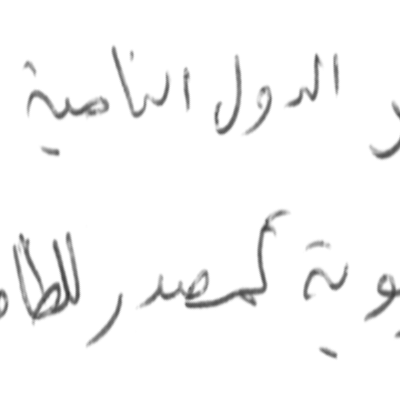 الدول النامية
كمصدر للطا